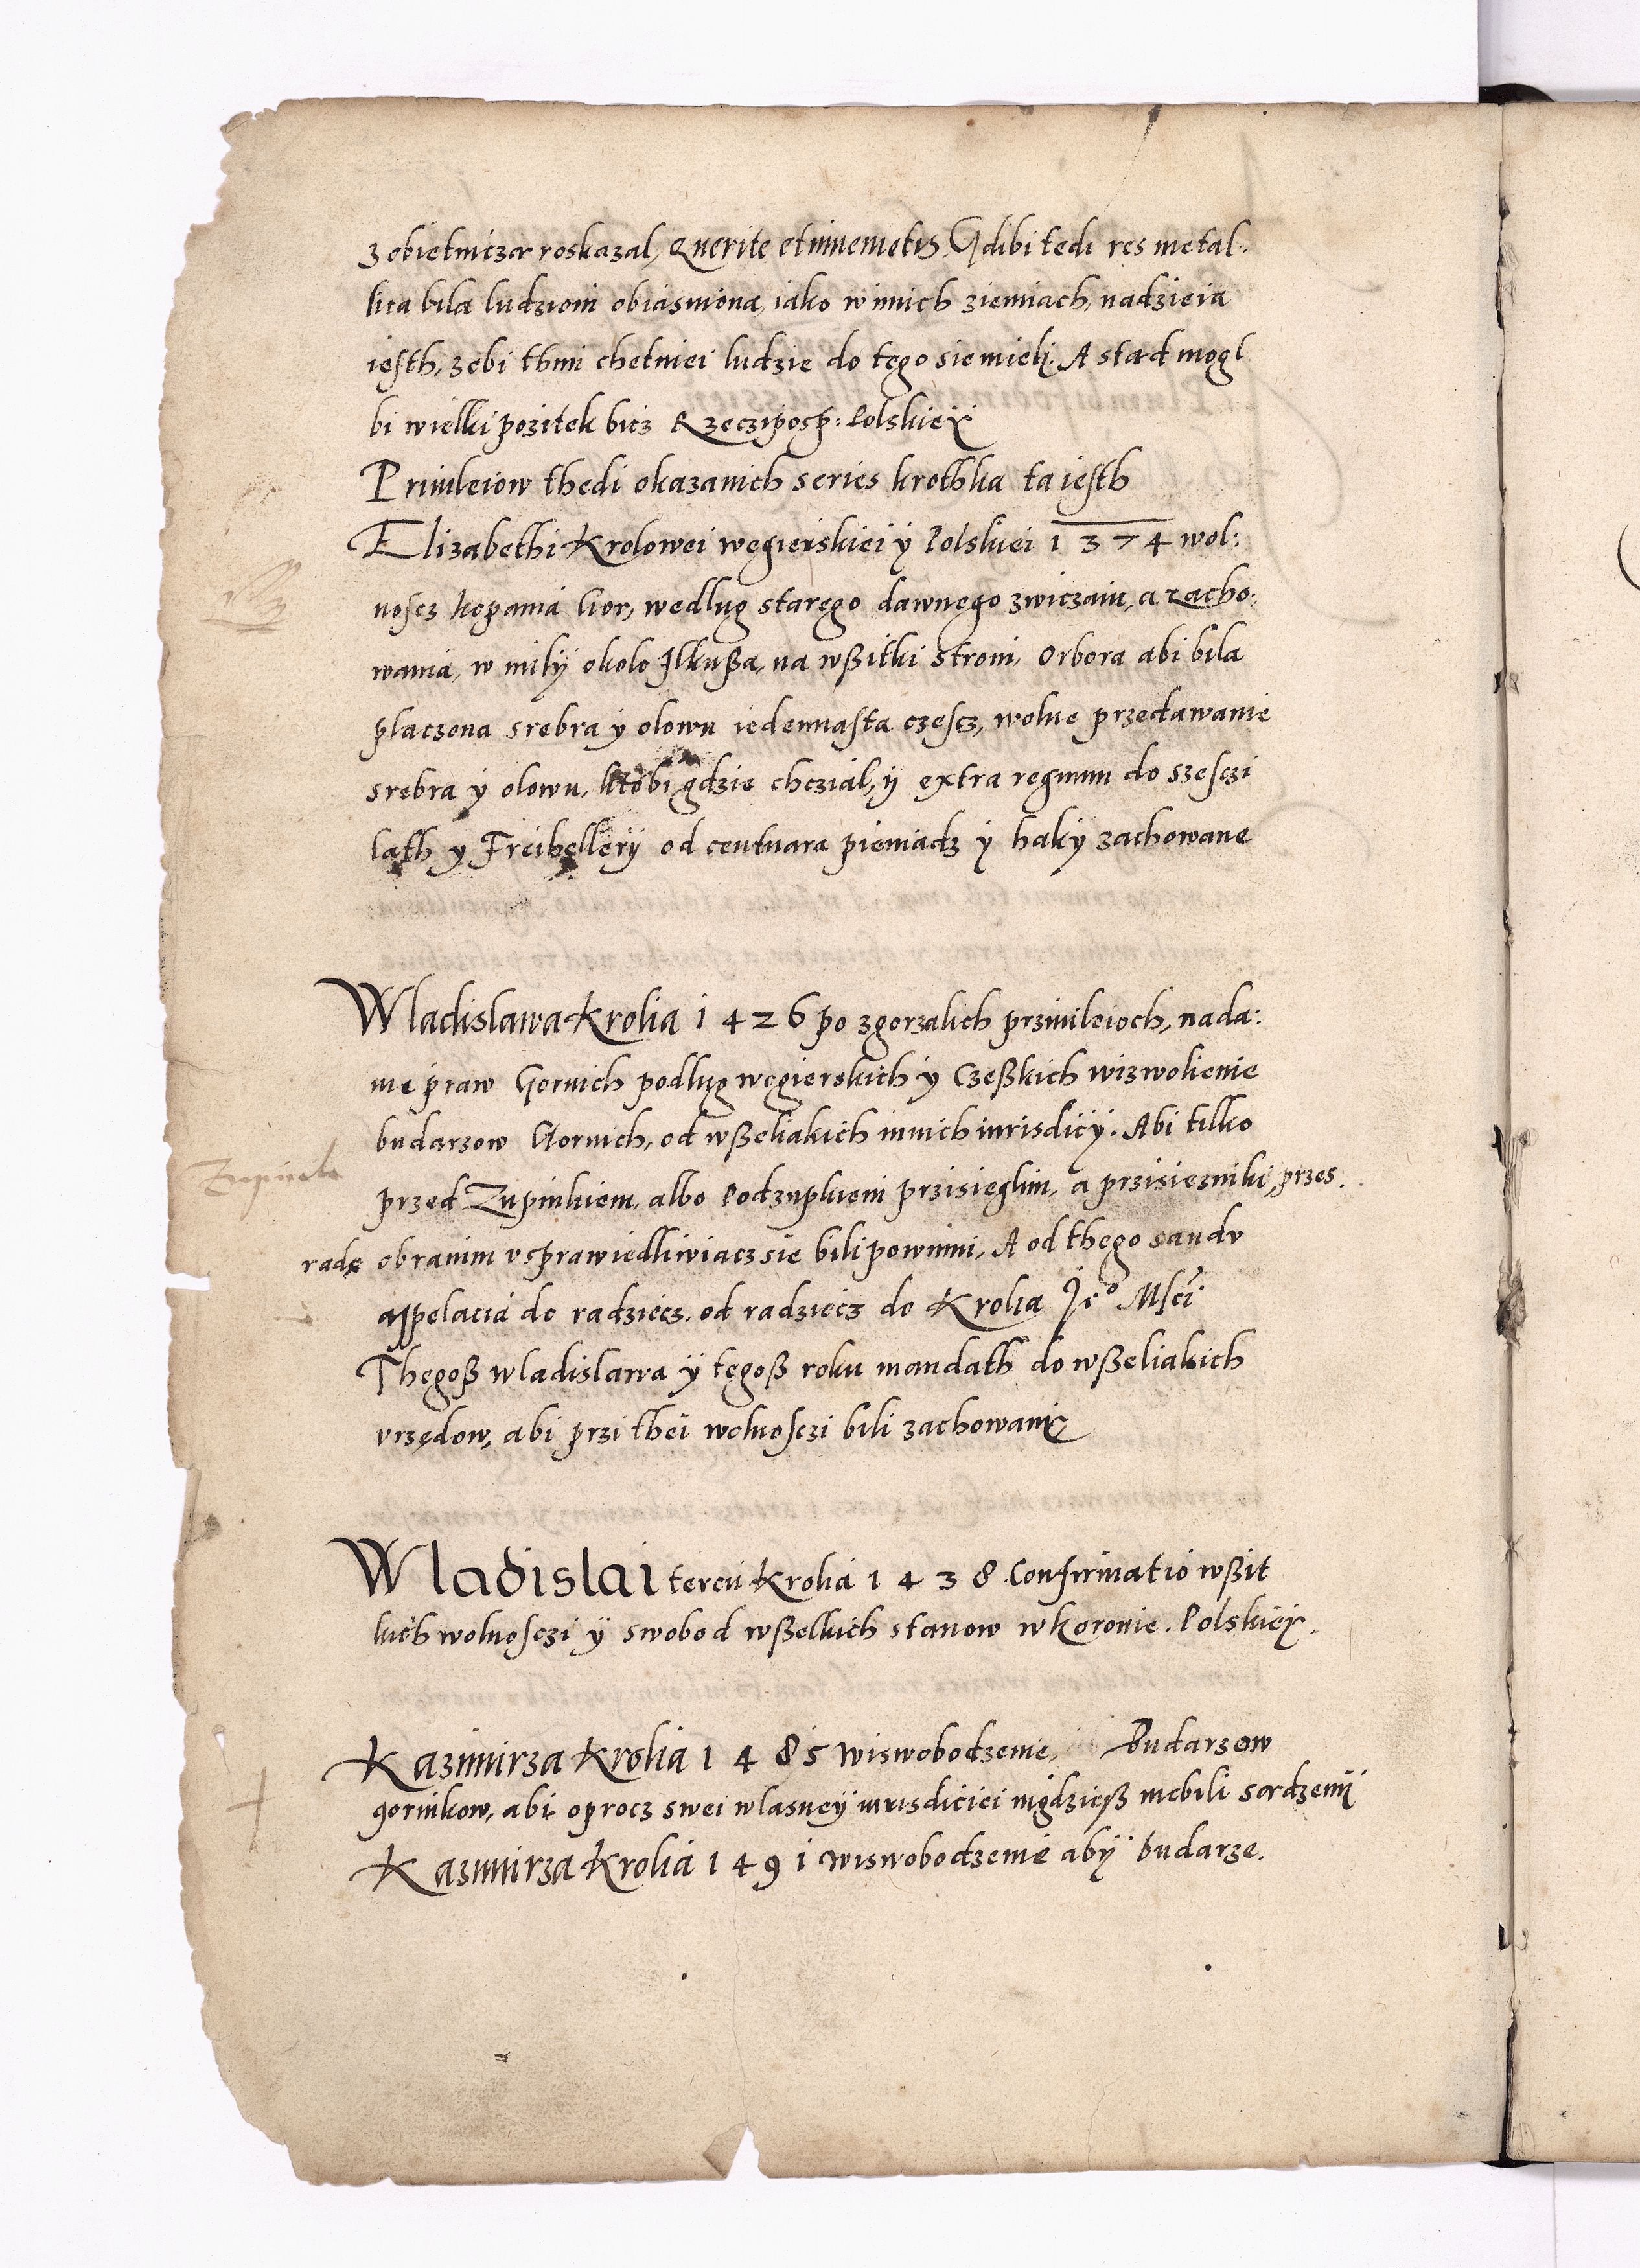 z obietnicza roskazal, Querite et invenietis. Gdibi tedi res metal:
lica bila ludziom obiasniona, iako w innich ziemiach, nadzieia
iesth, zebi thim chetniei ludzie do tego sie mieli. A stad mogl
bi wielki pozitek bicz Rzecziposp: Polskiei
Priuileiow thedi okazanich series krothka ta iesth
Elizabethi Krolowei węgierskiei y Polskiei 1374 wol:
noscz kopania Gor, wedlug starego dawnego zwiczaiu, a zacho:
wania, w mily okolo Ilkußa, na wßitki stroni, Orbora abi bila
placzona srebra y olowu iedennasta czescz, wolne przedawanie
srebra y olowu, kto bi gdzie chczial, y extra regnum do szesczi
lath y Freibellery od centnara pieniadz y haky zachowane
Wladislawa Krolia 1426 po zgorzalich prziuileioch, nada:
nie praw Gornich podlug węgierskich y Czeßkich wizwolienie
budarzow Gornich, od wßeliakich innich iurisdicÿ. Abi tilko
Zupnik
przed Zupnikiem, albo Podzupkiem przisieglim, a przisiezniki, przes
radę obranim vsprawiedliwiacz sie bili powinni, A od thego sandv
appelacia do radziecz, od radziecz do Krolia Jeo Msci
Thegoß wladislawa ÿ tegoß roku mandath do wßeliakich
vrzędow, abi przi thei wolnosczi bili zachowani
Wladislai tercii Krolia 1438 Confirmatio wßit
kich wolnosczi ÿ swobod wßelkich stanow w koronie Polskiei.
Kazimirza Krolia 1485 wiswobodzenie, Budarzow
gornikow, abi oprocz swei wlasneÿ iurisdiciei nigdzieß nie bili sądzeni
Kazimirza Krolia 1491 wiswobodzenie abÿ budarze.